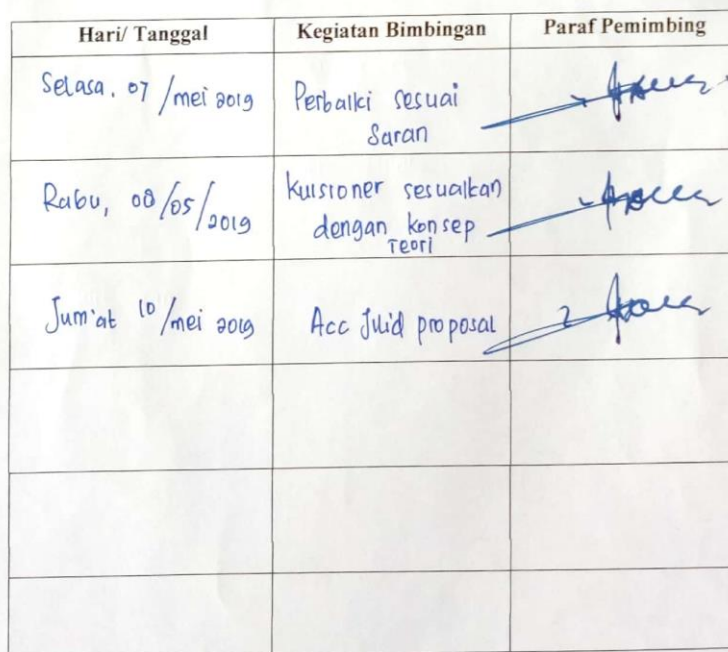 Hari/ Tanggal Kegiatan Bimbingan Paraf Pemimbing
Selasa, 07/mei 2019 Perbaiki sesuai
Saran
Rabu, 08/05/2019 Kuisioner sesuaikan
dengan konsep
Teori
Jum'at 10/mei 2019 Acc Julid proposal